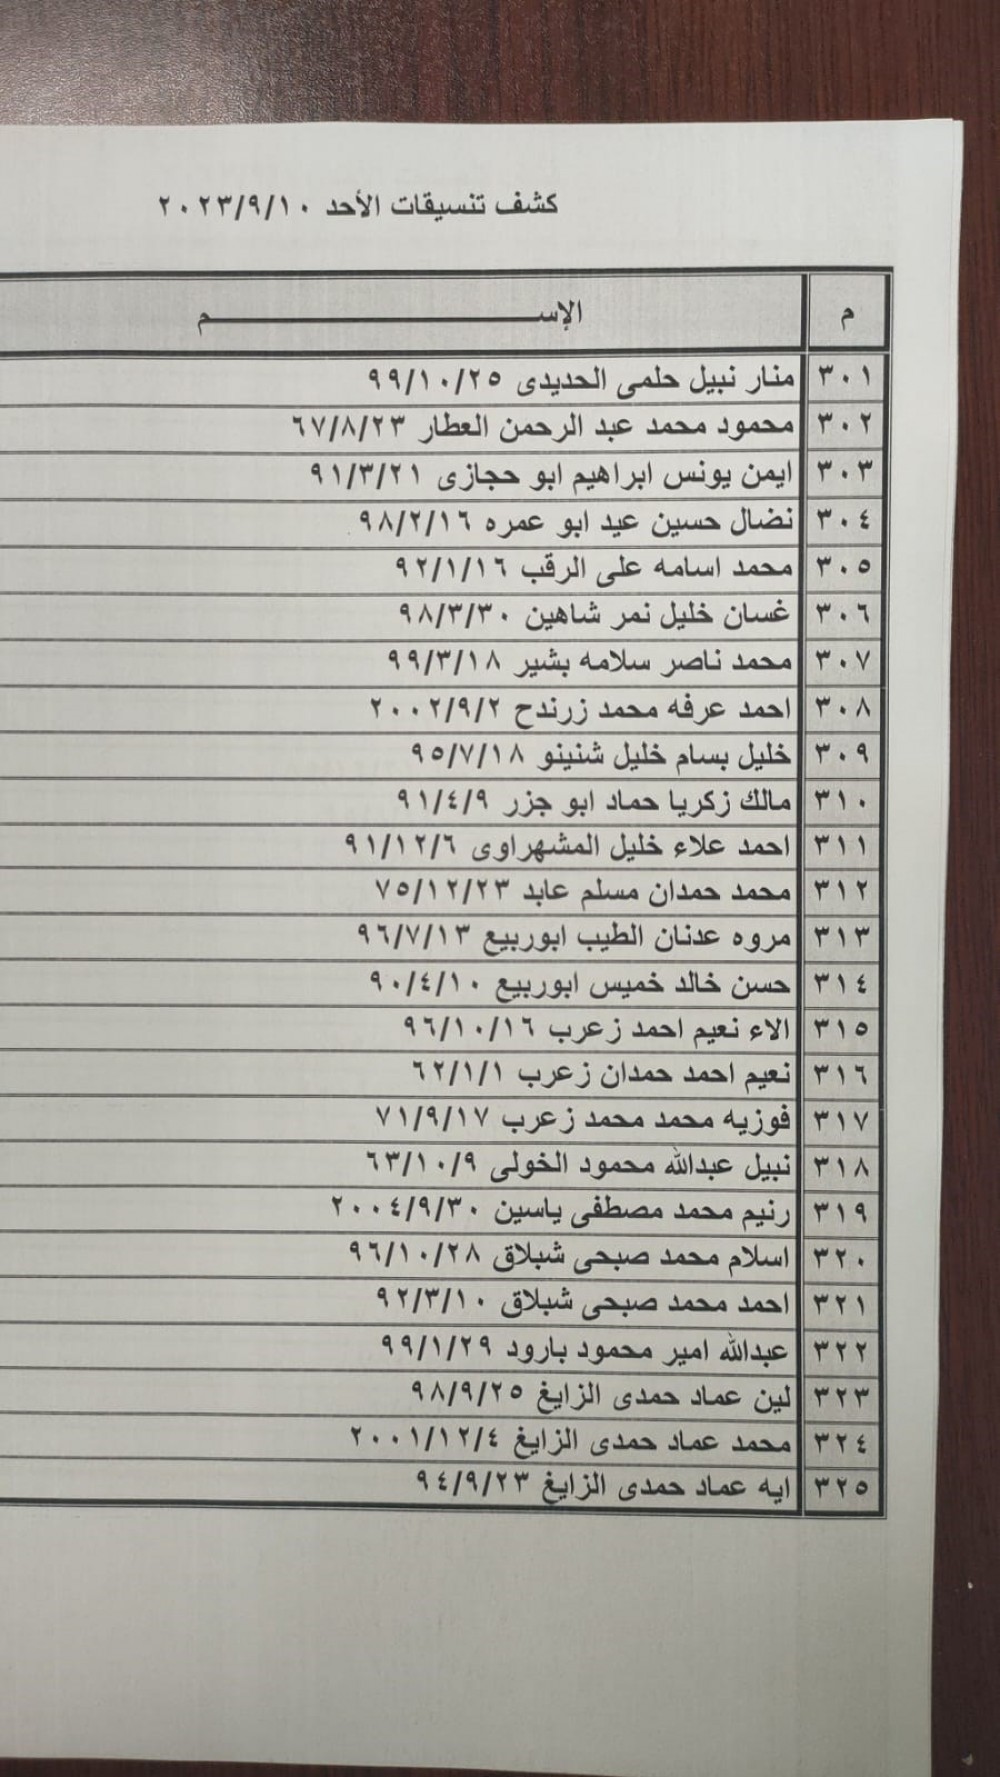 كشف تنسيقات الأحد ٢٠٢٣/٩/١٠
م الإســـــــــــــــــــــــــم
٣٠١ منار نبيل حلمى الحديدى ٩٩/١٠/٢٥
٣٠٢ محمود محمد عبد الرحمن العطار ٦٧/٨/٢٣
٣٠٣ ايمن يونس ابراهيم ابو حجازى ٩١/٣/٢١
٣٠٤ نضال حسين عيد ابو عمره ٩٨/٢/١٦
٣٠٥ محمد اسامه على الرقب ٩٢/١/١٦
٣٠٦ غسان خليل نمر شاهين ٩٨/٣/٣٠
٣٠٧ محمد ناصر سلامه بشير ٩٩/٣/١٨
٣٠٨ احمد عرفه محمد زرندح ٢٠٠٢/٩/٢
٣٠٩ خليل بسام خليل شنينو ٩٥/٧/١٨
٣١٠ مالك زكريا حماد ابو جزر ٩١/٤/٩
٣١١ احمد علاء خليل المشهراوى ٩١/١٢/٦
٣١٢ محمد حمدان مسلم عابد ٧٥/١٢/٢٣
٣١٣ مروه عدنان الطيب ابوربيع ٩٦/٧/١٣
٣١٤ حسن خالد خميس ابوربيع ٩٠/٤/١٠
٣١٥ الاء نعيم احمد زعرب ٩٦/١٠/١٦
٣١٦ نعيم احمد حمدان زعرب ٦٢/١/١
٣١٧ فوزيه محمد محمد زعرب ٧١/٩/١٧
٣١٨ نبيل عبدالله محمود الخولى ٦٣/١٠/٩
٣١٩ رنيم محمد مصطفى ياسين ٢٠٠٤/٩/٣٠
٣٢٠ اسلام محمد صبحى شبلاق ٩٦/١٠/٢٨
٣٢١ احمد محمد صبحى شبلاق ٩٢/٣/١٠
٣٢٢ عبدالله امير محمود بارود ٩٩/١/٢٩
٣٢٣ لين عماد حمدى الزايغ ٩٨/٩/٢٥
٣٢٤ محمد عماد حمدى الزايغ ٢٠٠١/١٢/٤
٣٢٥ ايه عماد حمدى الزايغ ٩٤/٩/٢٣